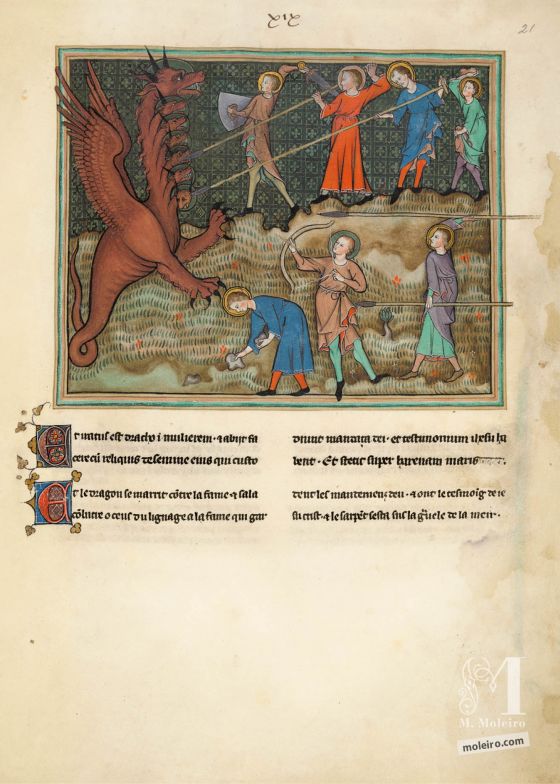 xix
21
Et iratus est draco i mulierem · ⁊ abijt fa
cere cū reliquis de semine eius qui custo
diunt mandata dei · et testimonium ihesu ha
bent · Et stetit super harenam maris
Et le dragon se marrit cōtre la fame ⁊ sala
cōbatre o ceus du lignage a la fame qui gar
dent les mandemenz deu · ⁊ ont le tesmoig de ie
su crist · ⁊ le sarpēt sesta sus la de la meir ·
M
M. Moleiro
moleiro.com